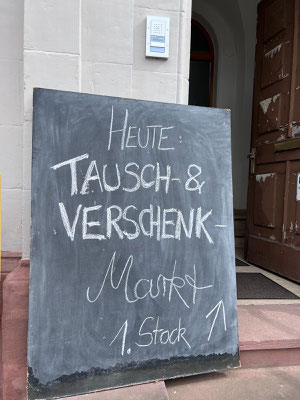 HEUTE:
TAUSCH- &
VERSCHENK-
Markt
1. Stock ↗